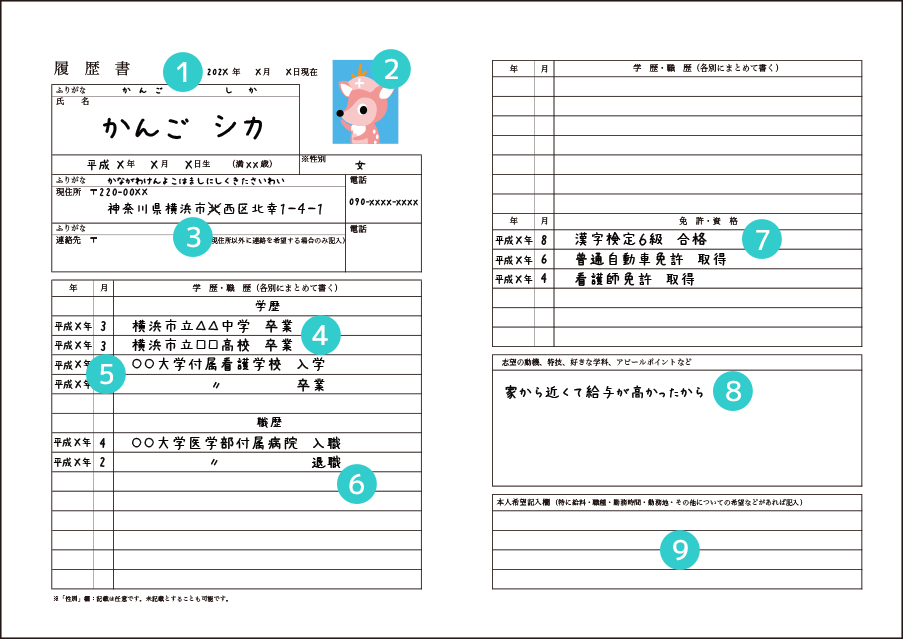 履 歴 書
1
202X 年 X月 X日現在
2
ふりがな か ん ご し か
氏 名
かんご シカ
平成 X年 X月 X日生 (満XX歳)
※性別
女
ふりがな かながわけんよこはましにしくきたさいわい
現住所 〒220-00XX
神奈川県横浜市西区北幸1-4-1
電話
090-xxxx-xxxx
ふりがな
連絡先 〒
3
現住所以外に連絡を希望する場合のみ記入)
電話
年 月 学 歴・職 歴(各別にまとめて書く)
学歴
平成X年 3 横浜市立△△中学 卒業
4
平成X年 3 横浜市立□□高校 卒業
平成X年 〇〇大学付属看護学校 入学
5
平成X年 〃 卒業
職歴
平成X年 4 〇〇大学医学部付属病院 入職
平成X年 2 〃 退職
6
※「性別」欄:記載は任意です。未記載とすることも可能です。
年 月 学 歴・職 歴(各別にまとめて書く)
年 月 免 許・資 格
平成X年 8 漢字検定6級 合格
7
平成X年 6 普通自動車免許 取得
平成X年 4 看護師免許 取得
志望の動機、特技、好きな学科、アピールポイントなど
家から近くて給与が高かったから
8
本人希望記入欄(特に給料・職種・勤務時間・勤務地・その他についての希望などがあれば記入)
9